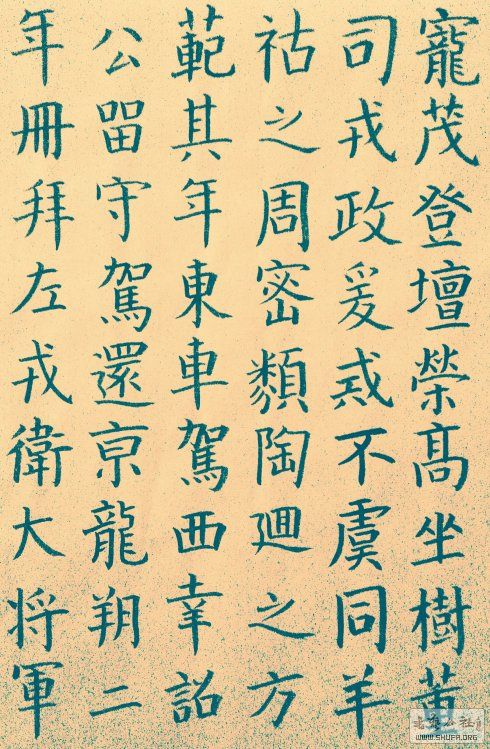 寵茂登壇榮髙坐樹董
司戎政爰戒不虞同羊
祜之周密類陶廻之方
範其年東車駕西幸詔
公留守駕還亰龍朔二
年冊拜左戎衛大将軍
WWW.SHUFA.ORG